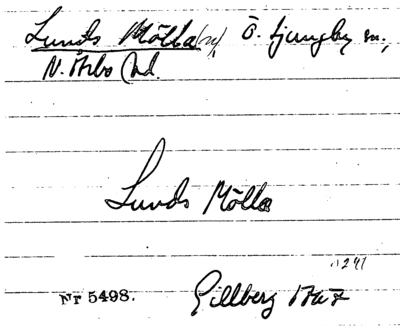 Lunds Mölla (n), Ö. Ljungby sn,
N. Åsbo hd.
Lunds Mölla
s 241
Nr 5498. Gillberg 1767